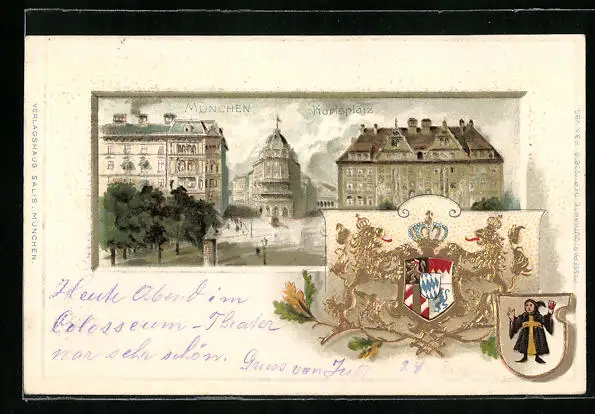 MÜNCHEN Karlsplatz.
VERLAGSHAUS SALIS. MÜNCHEN.
Heute Abend im
Colosseum-Theater
war sehr schön.
Gruss von